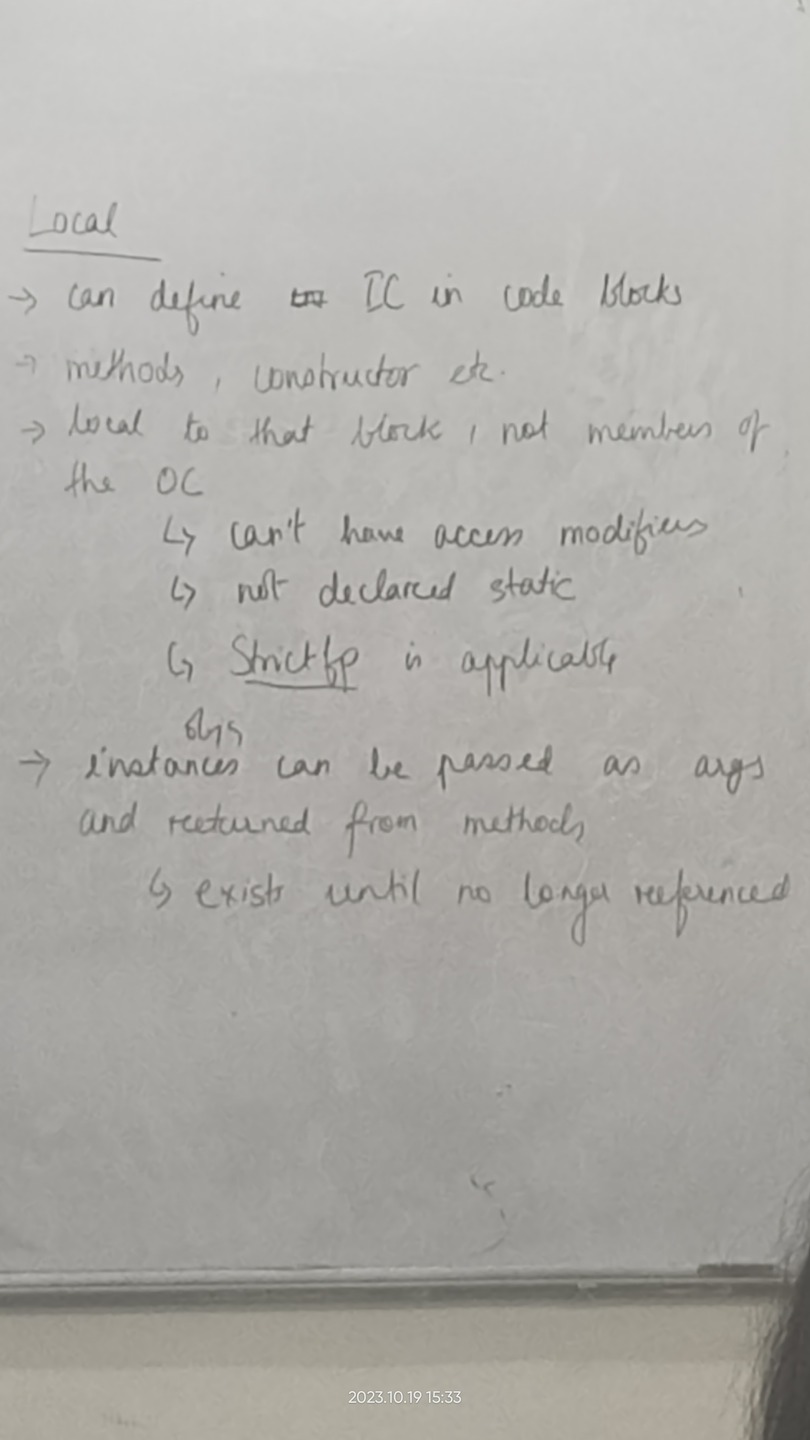 Local
→ can define IC in code blocks
→ methods, constructor etc.
→ local to that block, not members of
the OC
↳ can't have access modifiers
↳ not declared static
↳ Strictfp is applicable
objs
→ instances can be passed as args
and returned from methods
↳ exists until no longer referenced
2023.10.19 15:33